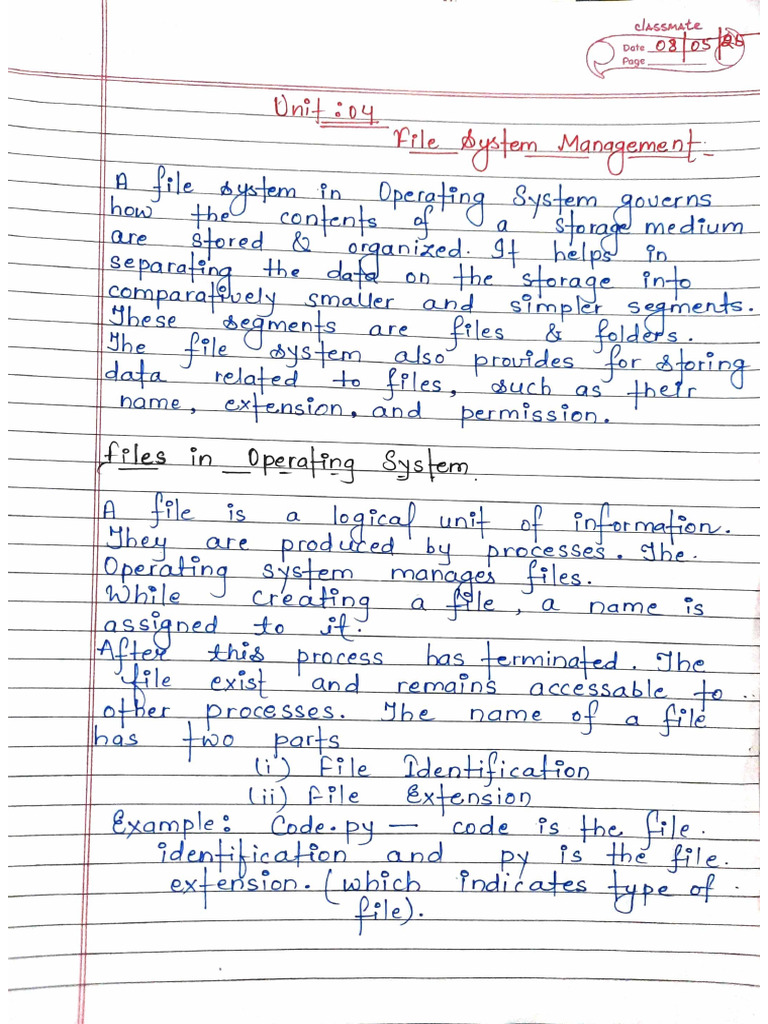 classmate
Date 08/05/25
Page
Unit : 04
File System Management.
A file system in Operating System governs
how the contents of a storage medium
are stored & organized. It helps in
separating the data on the storage into
comparatively smaller and simpler segments.
These segments are files & folders.
The file system also provides for storing
data related to files, such as their
name, extension, and permission.
files in Operating System.
A file is a logical unit of information.
They are produced by processes. The.
Operating system manages files.
While creating a file, a name is
assigned to it.
After this process has terminated. The
file exist and remains accessable to
other processes. The name of a file
has two parts
(i) File Identification
(ii) File Extension
Example: Code.py — code is the file.
identification and py is the file.
extension. (which indicates type of
file).